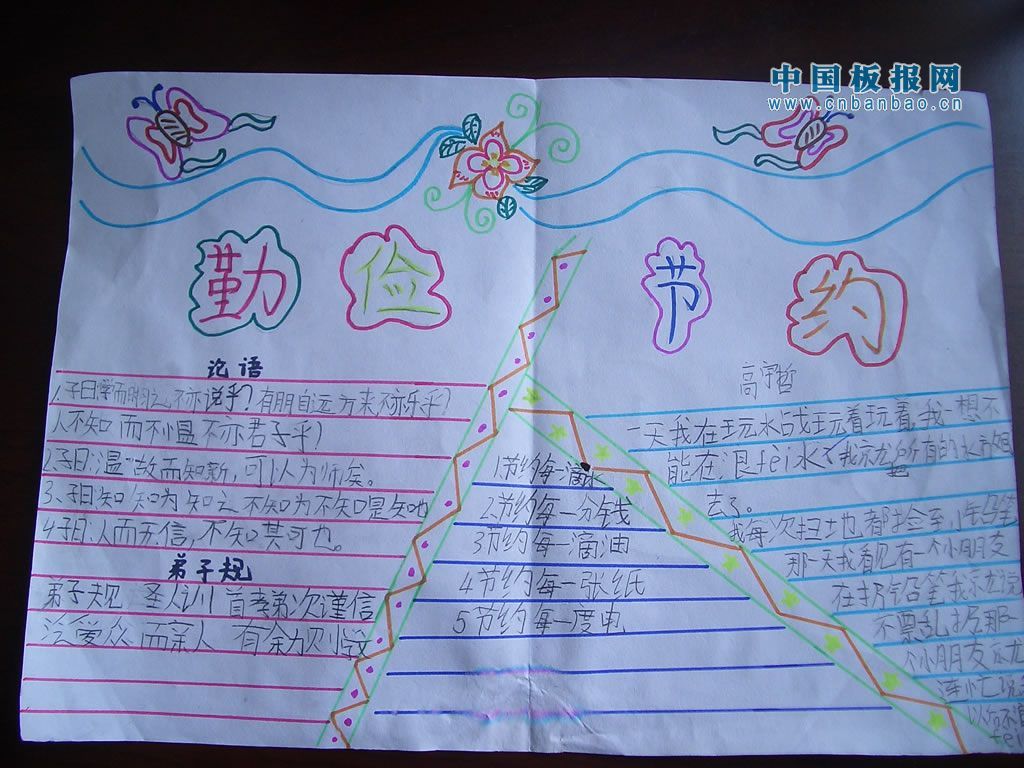 中国板报网
www.cnbanbao.cn
勤俭
节约
论语
1.子曰:学而时习之,不亦说乎?有朋自远方来,不亦乐乎?
人不知而不愠不亦君子乎!
2.子曰:温故而知新,可以为师矣。
3.子曰知知为知之不知为不知是知也
4子曰:人而无信,不知其可也。
弟子规
弟子规 圣人训 首孝弟次谨信
泛爱众而亲人 有余力则学
1节约每一滴水
2节约每一分钱
3节约每一滴油
4节约每一张纸
5节约每一度电
高宇哲
一天我在玩水战玩着玩着,我一想不
能在浪fèi水了我就把所有的水
去了。
我每次扫地都捡到小铅笔
那一天我看见有一个小朋友
在扔铅笔我就说
不要乱扔那
个小朋友就
连忙说
以后不
fèi